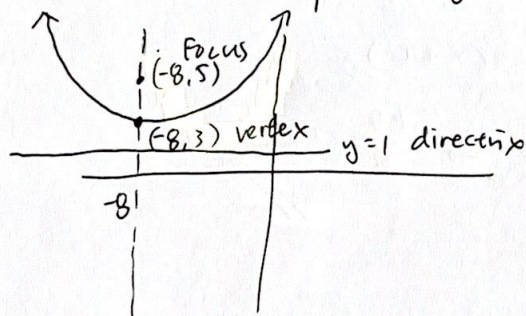 Focus
(-8,5)
(-8,3) vertex
y=1 directrix
-8